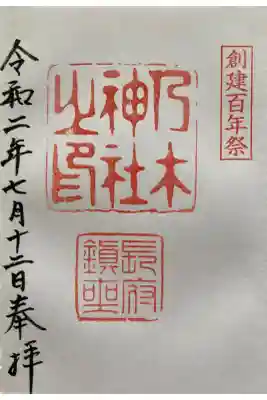 創建百年祭
乃木
神社
之印
長府
鎮坐
令和二年七月十二日奉拝